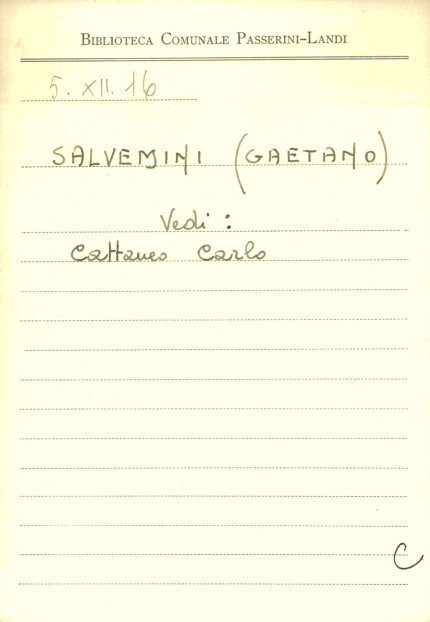 BIBLIOTECA COMUNALE PASSERINI-LANDI
5. XII. 16
SALVEMINI (GAETANO)
Vedi :
Cattaneo Carlo
C